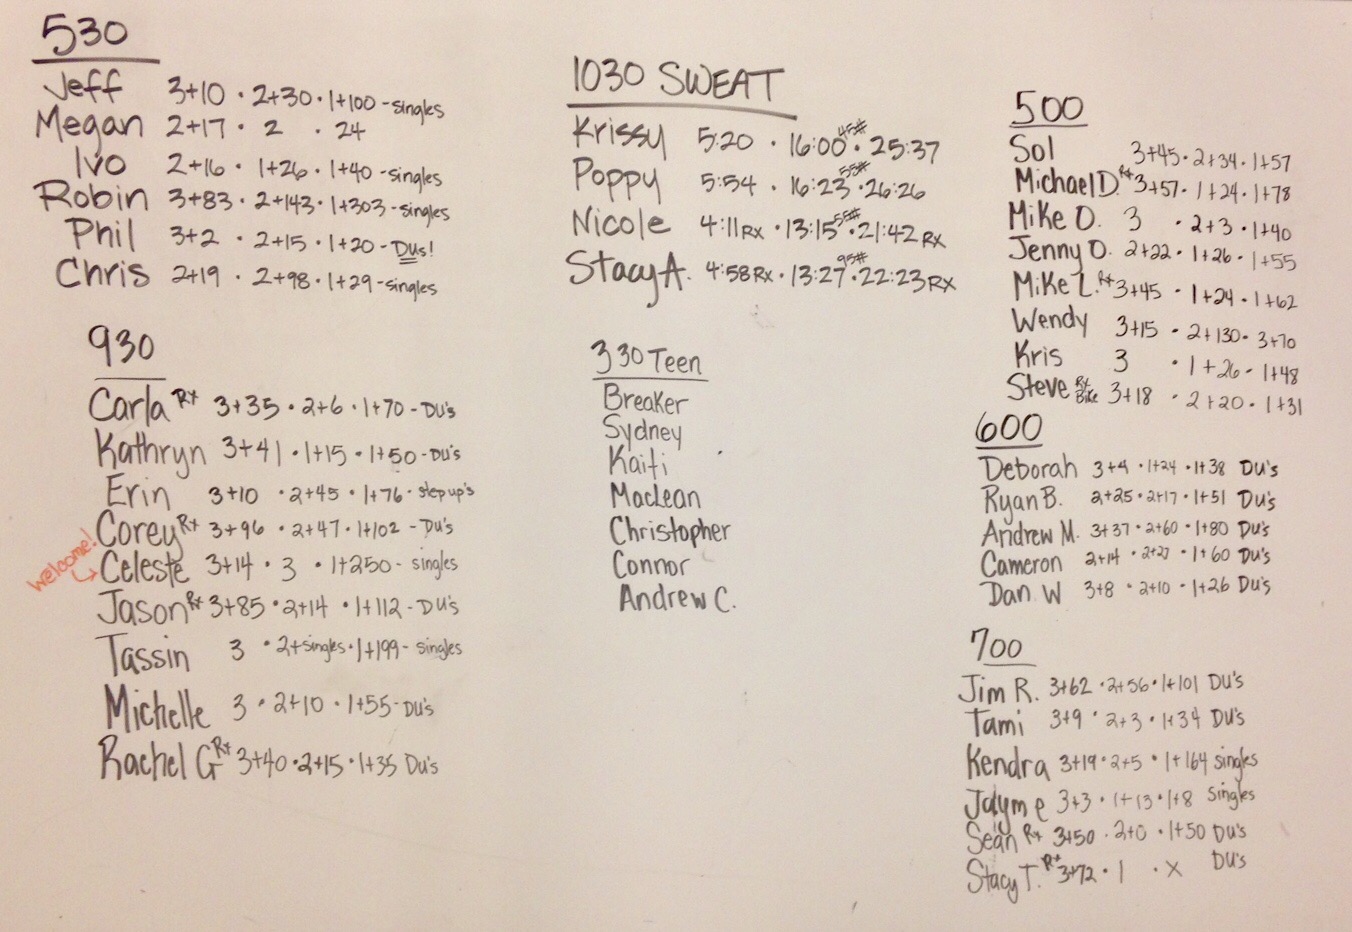 530
Jeff 3+10 · 2+30 · 1+100 - singles
Megan 2+17 · 2 · 24
Ivo 2+16 · 1+26 · 1+40 - singles
Robin 3+83 · 2+143 · 1+303 - singles
Phil 3+2 · 2+15 · 1+20 - DUs!
Chris 2+19 · 2+98 · 1+29 - singles
930
Carla Rx 3+35 · 2+6 · 1+70 - DU's
Kathryn 3+41 · 1+15 · 1+50 - DU's
Erin 3+10 · 2+45 · 1+76 - step up's
Corey Rx 3+96 · 2+47 · 1+102 - DU's
welcome!
Celeste 3+14 · 3 · 1+250 - singles
Jason Rx 3+85 · 2+14 · 1+112 - DU's
Tassin 3 · 2+singles · 1+199 - singles
Michelle 3 · 2+10 · 1+55 - DU's
Rachel G Rx 3+40 · 2+15 · 1+35 DU's
1030 SWEAT
Krissy 5:20 · 16:00 45# · 25:37
Poppy 5:54 · 16:23 55# · 26:26
Nicole 4:11 RX · 13:15 55# · 21:42 RX
Stacy A. 4:58 RX · 13:27 95# · 22:23 RX
330 Teen
Breaker
Sydney
Kaiti
MacLean
Christopher
Connor
Andrew C.
500
Sol 3+45 · 2+34 · 1+57
Michael D. Rx 3+57 · 1+24 · 1+78
Mike O. 3 · 2+3 · 1+40
Jenny O. 2+22 · 1+26 · 1+55
Mike Z. Rx 3+45 · 1+24 · 1+62
Wendy 3+15 · 2+130 · 3+70
Kris 3 · 1+26 · 1+48
Steve Rx Bike 3+18 · 2+20 · 1+31
600
Deborah 3+4 · 1+24 · 1+38 DU's
Ryan B. 2+25 · 2+17 · 1+51 DU's
Andrew M. 3+37 · 2+60 · 1+80 DU's
Cameron 2+14 · 2+27 · 1+60 DU's
Dan W 3+8 · 2+10 · 1+26 DU's
700
Jim R. 3+62 · 2+56 · 1+101 DU's
Tami 3+9 · 2+3 · 1+34 DU's
Kendra 3+19 · 2+5 · 1+164 singles
Jayme 3+3 · 1+13 · 1+8 singles
Sean Rx 3+50 · 2+0 · 1+50 DU's
Stacy T. Rx 3+72 · 1 · X DU's